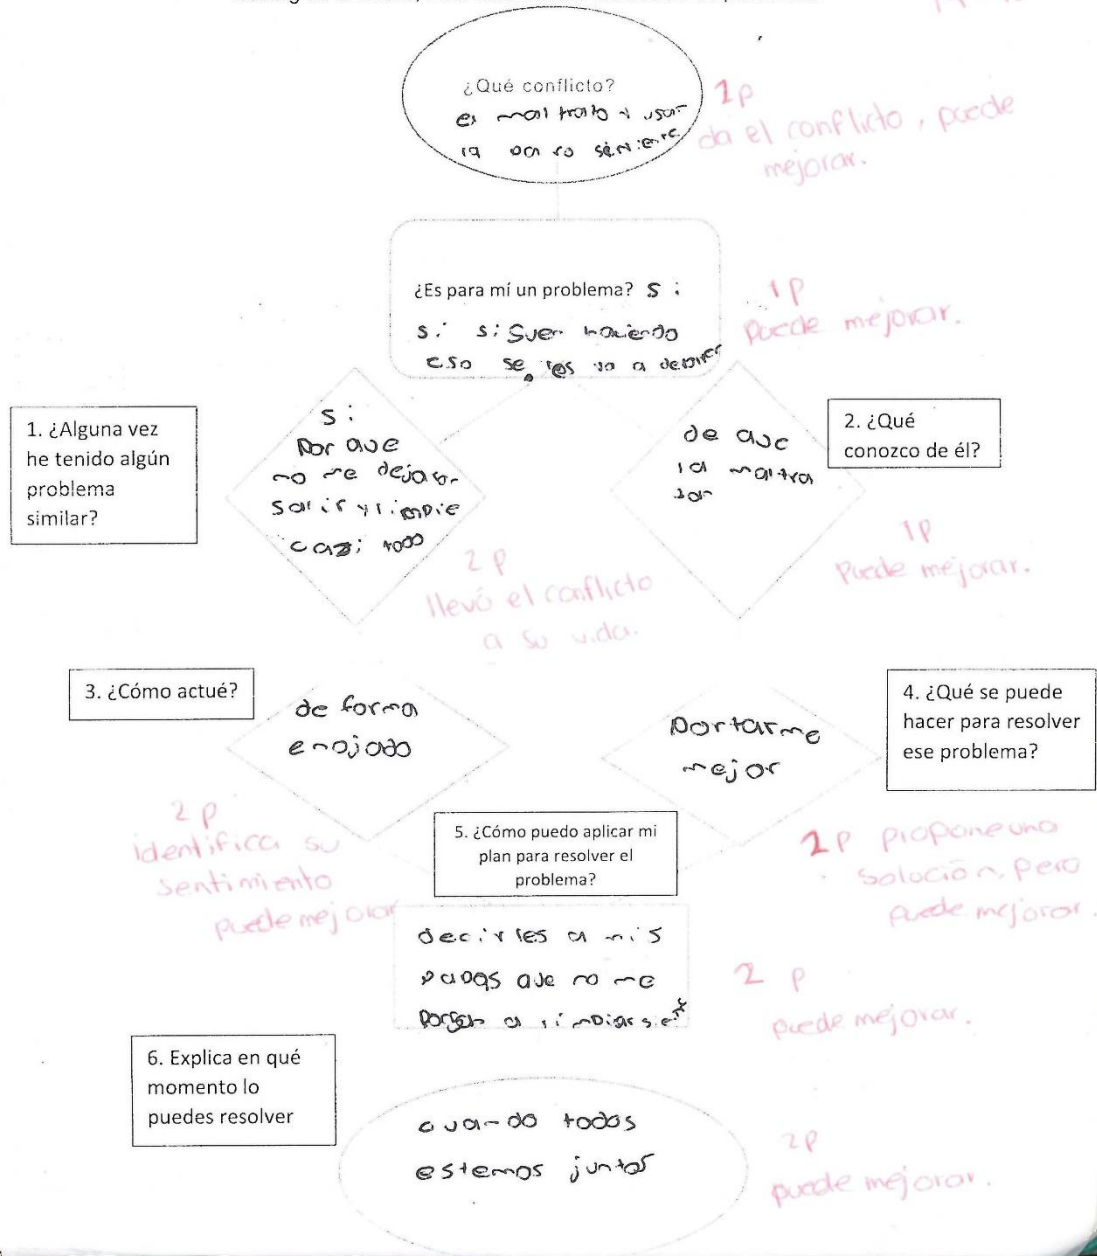 ¿Qué conflicto?
el mal trato y usar
la como sirviente
1p
da el conflicto, puede
mejorar.
¿Es para mí un problema? si
si siguen haciendo
eso se les va a
1p
Puede mejorar.
1. ¿Alguna vez
he tenido algún
problema
similar?
si
Por que
no me dejaron
salir y limpie
cazi todo
2p
llevó el conflicto
a su vida.
2. ¿Qué
conozco de él?
de que
la maltra
tan
1p
Puede mejorar.
3. ¿Cómo actué?
de forma
enojado
2p
identifica su
sentimiento
puede mejorar
4. ¿Qué se puede
hacer para resolver
ese problema?
portarme
mejor
2p propone una
solución, pero
puede mejorar.
5. ¿Cómo puedo aplicar mi
plan para resolver el
problema?
decirles a mis
papas que no me
pongan a limpiar
2p
puede mejorar.
6. Explica en qué
momento lo
puedes resolver
cuando todos
estemos juntos
2p
puede mejorar.